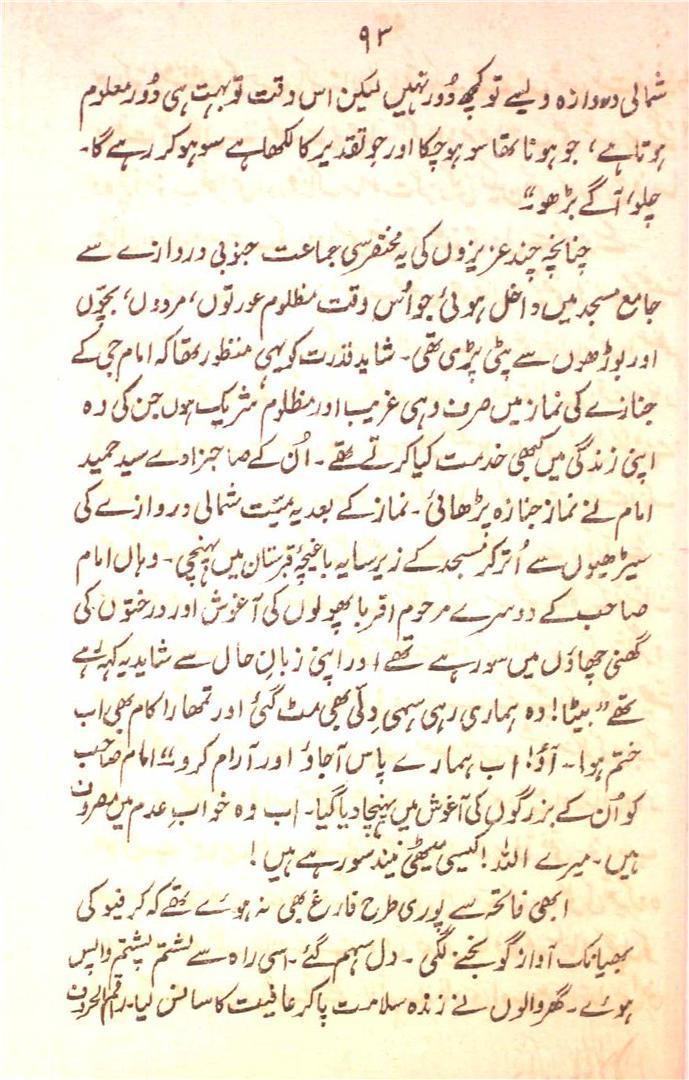 ۹۳
شمالی دروازہ ویسے تو کچھ دُور نہیں لیکن اس وقت تو بہت ہی دُور معلوم
ہوتا ہے، جو ہونا تھا سو ہوچکا اور جو تقدیر کا لکھا ہے سو ہو کر رہے گا۔
چلو، آگے بڑھو۔“
چنانچہ چند عزیزوں کی یہ مختصر سی جماعت جنوبی دروازے سے
جامع مسجد میں داخل ہوئی جو اُس وقت مظلوم عورتوں، مردوں، بچّوں
اور بوڑھوں سے پٹی پڑی تھی۔ شاید قدرت کو یہی منظور تھا کہ امام جی کے
جنازے کی نماز میں صرف وہی غریب اور مظلوم شریک ہوں جن کی وہ
اپنی زندگی میں کبھی خدمت کیا کرتے تھے۔ اُن کے صاحبزادے سید حمید
امام نے نماز جنازہ پڑھائی۔ نماز کے بعد یہ میّت شمالی دروازے کی
سیڑھیوں سے اُتر کر مسجد کے زیر سایہ باغیچۂ قبرستان میں پہنچی۔ وہاں امام
صاحب کے دوسرے مرحوم اقربا پھولوں کی آغوش اور درختوں کی
گھنی چھاؤں میں سو رہے تھے اور اپنی زبانِ حال سے شاید یہ کہہ رہے
تھے ”بیٹا! وہ ہماری رہی سہی دِلّی بھی مٹ گئی اور تمھارا کام بھی اب
ختم ہوا۔ آؤ! اب ہمارے پاس آجاؤ اور آرام کرو۔“ امام صاحب
کو اُن کے بزرگوں کی آغوش میں پہنچا دیا گیا۔ اب وہ خوابِ عدم میں مصروف
ہیں۔ میرے اللہ! کیسی میٹھی نیند سو رہے ہیں!
ابھی فاتحہ سے پوری طرح فارغ بھی نہ ہوئے تھے کہ کرفیو کی
بھیانک آواز گونجنے لگی۔ دل سہم گئے۔ اسی راہ سے لشتم پشتم واپس
ہوئے۔ گھر والوں نے زندہ سلامت پاکر عافیت کا سانس لیا۔ راقم الحروف